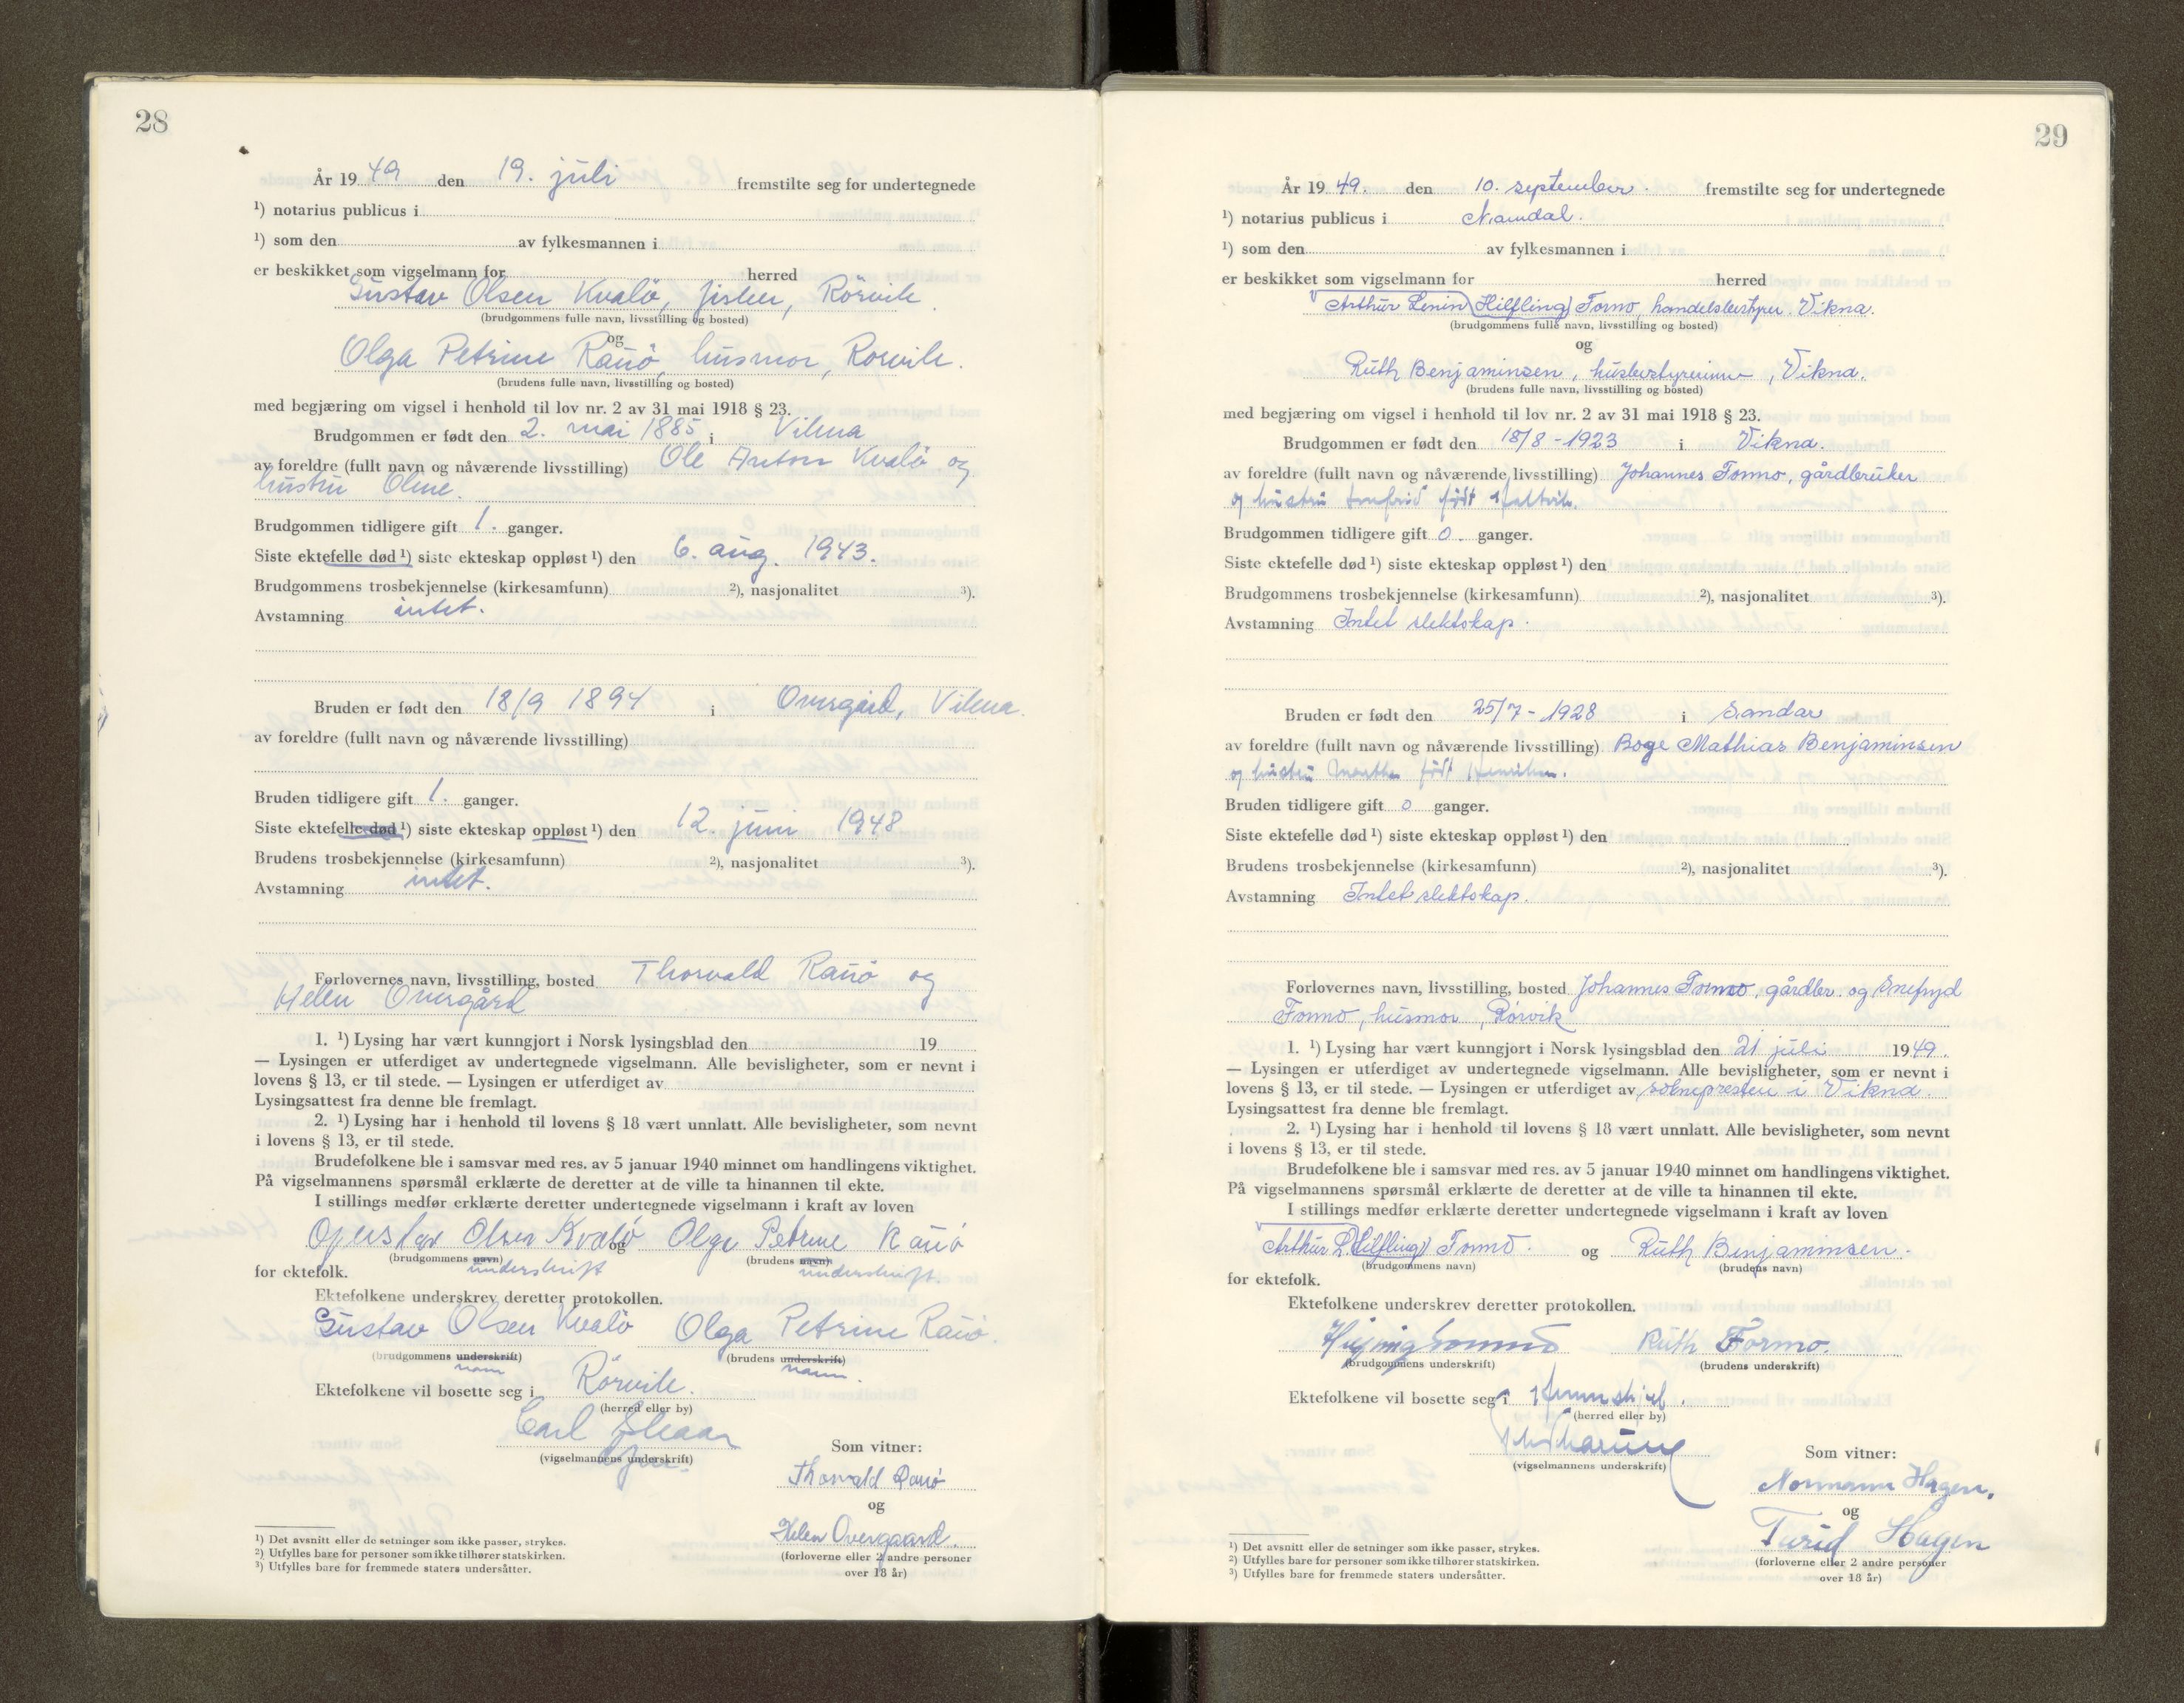 28
År 19 49 den 19. juli fremstilte seg for undertegnede
¹) notarius publicus i
¹) som den av fylkesmannen i
er beskikket som vigselmann for herred
Gustav Olsen Kvalö, fisker, Rörvik.
(brudgommens fulle navn, livsstilling og bosted)
og
Olga Petrine Ranö, husmor, Rörvik.
(brudens fulle navn, livsstilling og bosted)
med begjæring om vigsel i henhold til lov nr. 2 av 31 mai 1918 § 23.
Brudgommen er født den 2. mai 1885 i Vikna
av foreldre (fullt navn og nåværende livsstilling) Ole Anton Kvalö og
hustru Oline.
Brudgommen tidligere gift 1. ganger.
Siste ektefelle død ¹) siste ekteskap oppløst ¹) den 6. aug. 1943.
Brudgommens trosbekjennelse (kirkesamfunn) ²), nasjonalitet ³).
Avstamning intet.
Bruden er født den 18/9 1894 i Overgård, Vikna.
av foreldre (fullt navn og nåværende livsstilling)
Bruden tidligere gift 1. ganger.
Siste ektefelle død ¹) siste ekteskap oppløst ¹) den 12. juni 1948
Brudens trosbekjennelse (kirkesamfunn) ²), nasjonalitet ³).
Avstamning intet.
Forlovernes navn, livsstilling, bosted Thorvald Ranö og
Helen Overgård
1. ¹) Lysing har vært kunngjort i Norsk lysingsblad den 19
— Lysingen er utferdiget av undertegnede vigselmann. Alle bevisligheter, som er nevnt i
lovens § 13, er til stede. — Lysingen er utferdiget av
Lysingsattest fra denne ble fremlagt.
2. ¹) Lysing har i henhold til lovens § 18 vært unnlatt. Alle bevisligheter, som nevnt
i lovens § 13, er til stede.
Brudefolkene ble i samsvar med res. av 5 januar 1940 minnet om handlingens viktighet.
På vigselmannens spørsmål erklærte de deretter at de ville ta hinannen til ekte.
I stillings medfør erklærte deretter undertegnede vigselmann i kraft av loven
Gustav Olsen Kvalö og Olga Petrine Ranö
(brudgommens navn) (brudens navn)
underskrift underskrift.
for ektefolk.
Ektefolkene underskrev deretter protokollen.
Gustav Olsen Kvalö Olga Petrine Ranö.
(brudgommens underskrift) (brudens underskrift)
navn navn.
Ektefolkene vil bosette seg i Rörvik.
(herred eller by)
Carl
(vigselmannens underskrift)
Som vitner:
Thorvald Ranö
og
Helen Overgaard.
(forloverne eller 2 andre personer
over 18 år)
¹) Det avsnitt eller de setninger som ikke passer, strykes.
²) Utfylles bare for personer som ikke tilhører statskirken.
³) Utfylles bare for fremmede staters undersåtter.
29
År 19 49. den 10. september. fremstilte seg for undertegnede
¹) notarius publicus i Namdal.
¹) som den av fylkesmannen i
er beskikket som vigselmann for herred
Arthur Lenin (Hilfling) Formo, handelsbestyrer. Vikna.
(brudgommens fulle navn, livsstilling og bosted)
og
Ruth Benjaminsen, husbestyrerinne, Vikna.
(brudens fulle navn, livsstilling og bosted)
med begjæring om vigsel i henhold til lov nr. 2 av 31 mai 1918 § 23.
Brudgommen er født den 18/8 - 1923 i Vikna.
av foreldre (fullt navn og nåværende livsstilling) Johannes Formo, gårdbruker
og hustru født
Brudgommen tidligere gift 0. ganger.
Siste ektefelle død ¹) siste ekteskap oppløst ¹) den
Brudgommens trosbekjennelse (kirkesamfunn) ²), nasjonalitet ³).
Avstamning Intet slektskap.
Bruden er født den 25/7 - 1928 i Sandar
av foreldre (fullt navn og nåværende livsstilling) Boge Mathias Benjaminsen
og hustru Martha født Henriksen.
Bruden tidligere gift 0 ganger.
Siste ektefelle død ¹) siste ekteskap oppløst ¹) den
Brudens trosbekjennelse (kirkesamfunn) ²), nasjonalitet ³).
Avstamning Intet slektskap.
Forlovernes navn, livsstilling, bosted Johannes Formo, gårdbr. og Snefryd
Formo, husmor, Rörvik
1. ¹) Lysing har vært kunngjort i Norsk lysingsblad den 21 juli 1949.
— Lysingen er utferdiget av undertegnede vigselmann. Alle bevisligheter, som er nevnt i
lovens § 13, er til stede. — Lysingen er utferdiget av soknepresten i Vikna.
Lysingsattest fra denne ble fremlagt.
2. ¹) Lysing har i henhold til lovens § 18 vært unnlatt. Alle bevisligheter, som nevnt
i lovens § 13, er til stede.
Brudefolkene ble i samsvar med res. av 5 januar 1940 minnet om handlingens viktighet.
På vigselmannens spørsmål erklærte de deretter at de ville ta hinannen til ekte.
I stillings medfør erklærte deretter undertegnede vigselmann i kraft av loven
Arthur L. (Hilfling) Formo. og Ruth Benjaminsen.
(brudgommens navn) (brudens navn)
for ektefolk.
Ektefolkene underskrev deretter protokollen.
Formo Ruth Formo.
(brudgommens underskrift) (brudens underskrift)
Ektefolkene vil bosette seg i
(herred eller by)
(vigselmannens underskrift)
Som vitner:
Normann Hagen.
og
Turid Hagen
(forloverne eller 2 andre personer
over 18 år)
¹) Det avsnitt eller de setninger som ikke passer, strykes.
²) Utfylles bare for personer som ikke tilhører statskirken.
³) Utfylles bare for fremmede staters undersåtter.